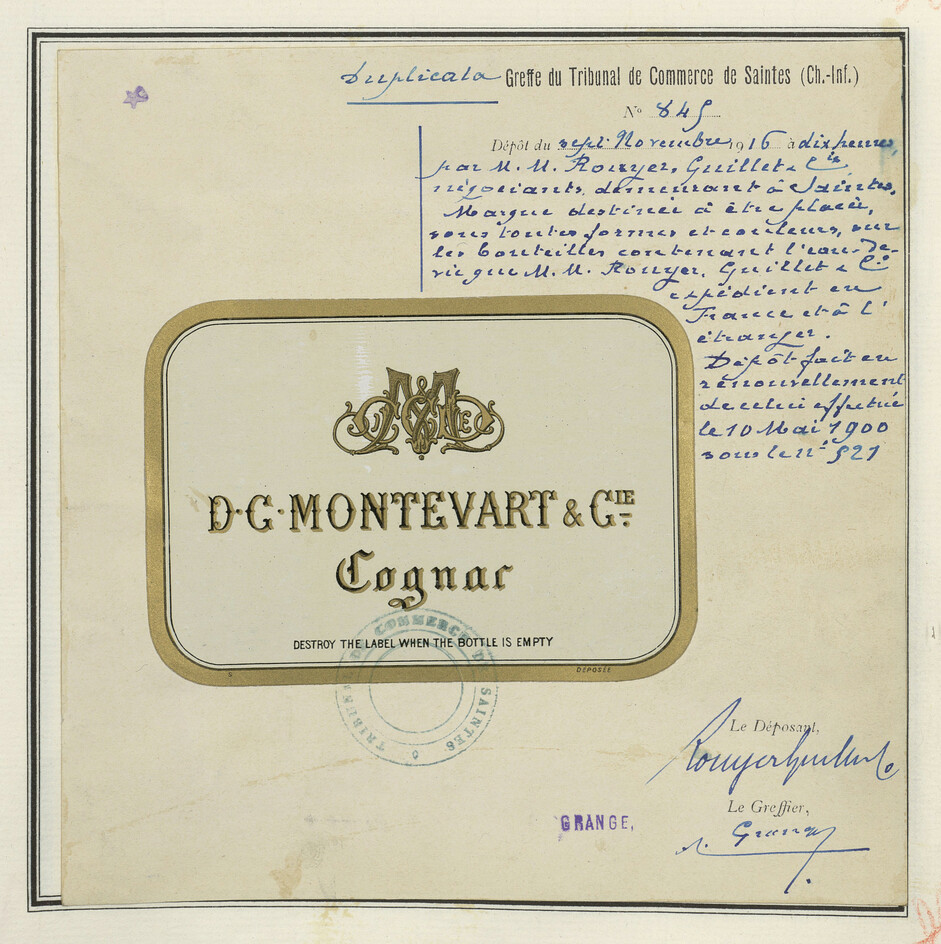 Duplicata Greffe du Tribunal de Commerce de Saintes (Ch.-Inf.)
N° 845
Dépôt du sept Novembre 1916 à dix heures,
par M. M. Rouyer, Guillet & Cie,
négociants, demeurant à Saintes.
Marque destinée à être placée,
sous toutes formes et couleurs, sur
les bouteilles contenant l'eau-de-
vie que M. M. Rouyer, Guillet & Cie
expédient en
France et à l'
étranger.
Dépôt fait en
renouvellement
de celui effectué
le 10 Mai 1900
sous le n° 521
D·C·MONTEVART & CIE
Cognac
DESTROY THE LABEL WHEN THE BOTTLE IS EMPTY
DÉPOSÉE
TRIBUNAL DE COMMERCE DE SAINTES
Le Déposant,
Rouyer Guillet & Co
Le Greffier,
GRANGE,
Grange